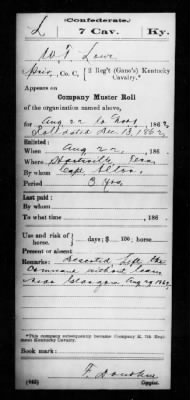 (Confederate.)
L 7 Cav. Ky.
W. F. Lowe
Priv, Co. C, 2 Reg't (Gano's) Kentucky Cavalry.*
Appears on
Company Muster Roll
of the organization named above,
for Aug 22 to Nov 1, 1862
Roll dated Dec 13, 1862
Enlisted:
When Aug 22, 186
Where Hartsville, Tenn
By whom Capt
Period 3 yrs.
Last paid:
By whom
To what time , 186 .
Use and risk of horse, days; $ 100 horse.
Present or absent
Remarks: Deserted, left the
Command without leave
near Glasgow Aug 29 1862
*This company subsequently became Company E, 7th Regiment Kentucky Cavalry.
Book mark:
Copyist.